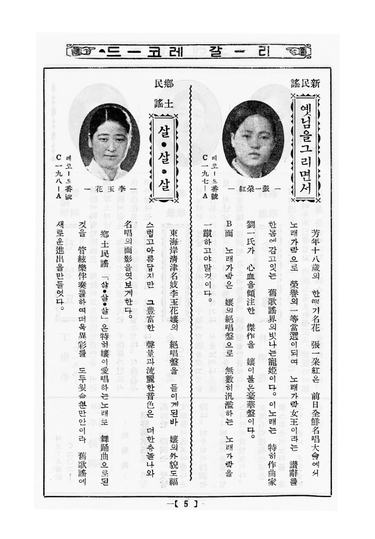 리ー갈 레코ー드
新民謠
옛님을그리면서
레코ー드番號
C一九七ーA
ー張一朶紅ー
芳年十八歲의 한떨기名花 張一朶紅은 前日全鮮名唱大會에서
노래가락으로 榮譽의一等當選이되여 노래가락女王이라는 讚辭를
한몸에감고잇는 舊歌謠界의빗나는寵姬이다。이노래는 特히作曲家
劉一氏가 心血을傾注한 傑作을 孃이불은豪華盤이다。
B面 노래가락은 孃의絕唱盤으로 無數히汎濫하는 노래가락을
一蹴하고야말것이다。
鄕土民謠
살•살•살
레코ー드番號
C一九八ーA
ー李玉花ー
東海岸淸津名妓李玉花孃의 絕唱盤을 들이게된바 孃의外貌도福
스럽고아름답지만 그豊富한 聲量과流麗한音色은 더한층놀나와
名唱의面影을엿보게한다。
鄕土民謠「살•살•살」은特히孃이愛唱하는노래로 舞踊曲으로된
것을 管絃樂伴奏를하여더욱異彩를 도두웟슬뿐만안이라 舊歌謠에
새로운進出을만들엇다。
ー【5】ー